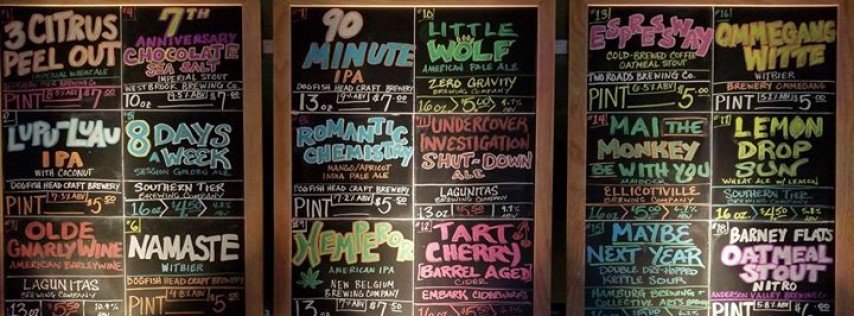 3 CITRUS
PEEL OUT
IMPERIAL WHEAT ALE
BREWING CO.
PINT 9.5% ABV $7.00
LUPU-LUAU
IPA
WITH COCONUT
DOGFISH HEAD CRAFT BREWERY
PINT 7.3% ABV $5.50
OLDE
GNARLYWINE
AMERICAN BARLEYWINE
LAGUNITAS
BREWING COMPANY
13 oz $5.50 10.9%
#4
7TH
ANNIVERSARY
CHOCOLATE
SEA SALT
IMPERIAL STOUT
WESTBROOK BREWING CO.
10oz $7.00
8 DAYS
A WEEK
SESSION GOLDEN ALE
SOUTHERN TIER
BREWING COMPANY
16 oz
#6
NAMASTE
WITBIER
DOGFISH HEAD CRAFT BREWERY
PINT 4.8% ABV $5.00
90
MINUTE
IPA
DOGFISH HEAD CRAFT BREWERY
13 oz 9% ABV $7.00
ROMANTIC
CHEMISTRY
MANGO/APRICOT
INDIA PALE ALE
DOGFISH HEAD CRAFT BREWERY
PINT 7.2% ABV $5.50
HEMPEROR
AMERICAN IPA
NEW BELGIUM
BREWING COMPANY
PINT 7% ABV $5.50
#10
LITTLE
WOLF
AMERICAN PALE ALE
ZERO GRAVITY
BREWING COMPANY
16 oz $5.00 4.7%
UNDERCOVER
INVESTIGATION
SHUT-DOWN
ALE
LAGUNITAS
BREWING COMPANY
13 oz $5.50
#12
TART
CHERRY
BARREL AGED
CIDER
EMBARK CIDERWORKS
#13
ESPRESSWAY
COLD-BREWED COFFEE
OATMEAL STOUT
TWO ROADS BREWING CO.
PINT 6.5% ABV $5.00
#14
MAI THE
MONKEY
BE WITH YOU
MAIBOCK
ELLICOTTVILLE
BREWING COMPANY
16 oz $5.00
MAYBE
NEXT YEAR
DOUBLE DRY-HOPPED
KETTLE SOUR
HAMBURG BREWING +
COLLECTIVE ARTS
PINT
OMMEGANG
WITTE
WITBIER
BREWERY OMMEGANG
PINT 5.2% ABV $5.00
#17
LEMON
DROP
SUN
WHEAT ALE W/ LEMON
SOUTHERN TIER
BREWING COMPANY
16 oz $4.50
#18
BARNEY FLATS
OATMEAL
STOUT
NITRO
ANDERSON VALLEY BREWING CO.
PINT